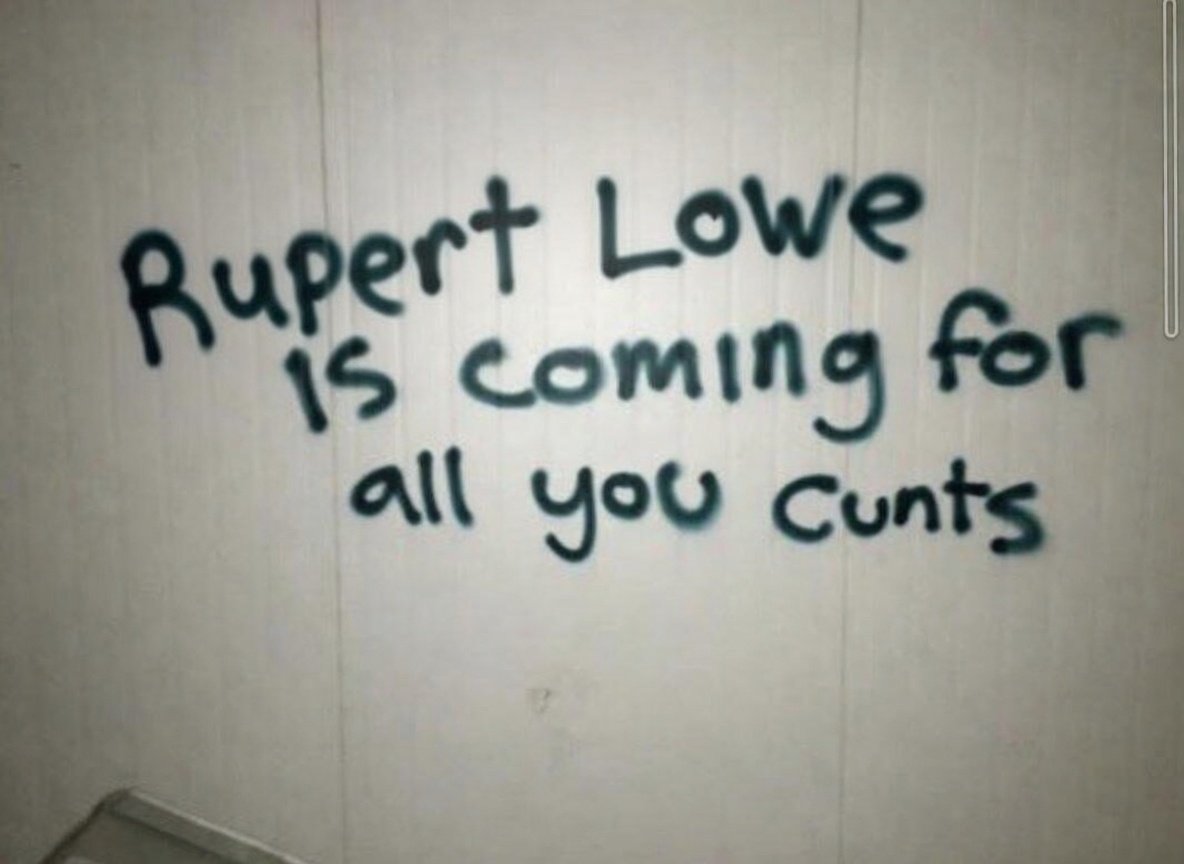 Rupert Lowe
is coming for
all you cunts